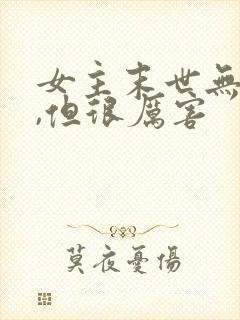 女主末世無
,但很厲害
莫夜憂傷